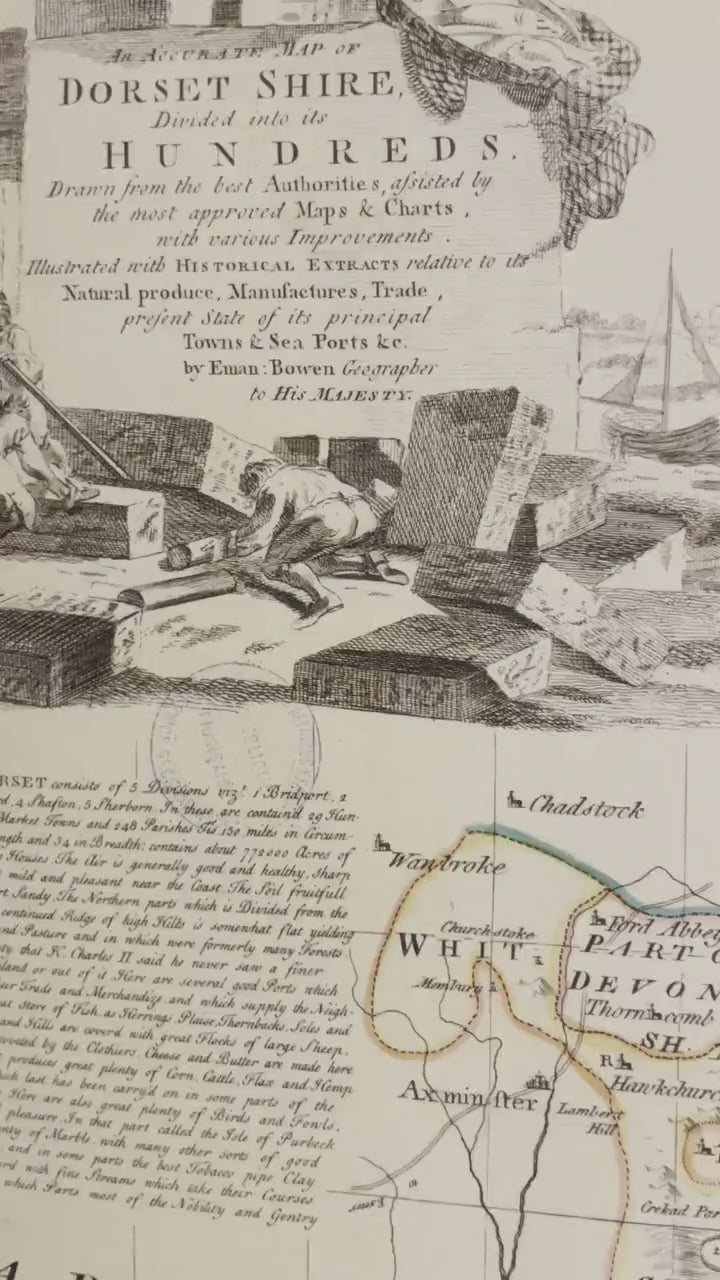 An Accurate Map of
DORSET SHIRE,
Divided into its
HUNDREDS.
Drawn from the best Authorities, aſsisted by
the most approved Maps & Charts,
with various Improvements.
Illustrated with HISTORICAL EXTRACTS relative to its
Natural produce, Manufactures, Trade,
preſent State of its principal
Towns & Sea Ports &c.
by Eman: Bowen Geographer
to His MAJESTY.
RSET consists of 5 Divisions viz.t 1 Bridport, 2
rd, 4 Shaſton, 5 Sherborn. In these are contain'd 29 Hun-
Market Towns and 248 Pariſhes Tis 150 miles in Circum-
ngth and 34 in Breadth; contains about 772000 Acres of
Houses. The Air is generally good and healthy, sharp
mild and pleasant near the Coast. The Soil fruitfull
rt Sandy. The Northern parts which is Divided from the
continued Ridge of high Hills is somewhat flat yielding
nd Pasture and in which were formerly many Forests
ty that K. Charles II said he never saw a finer
land or out of it Here are several good Ports which
eir Trade and Merchandize, and which supply the Neigh-
at store of Fish, as Herrings, Plaise, Thornbacks, Soles and
and Hills are coverd with great Flocks of large Sheep,
by the Clothiers. Cheese and Butter are made here
produces great plenty of Corn, Cattle, Flax and Hemp
last has been carry'd on in some parts of the
Here are also great plenty of Birds and Fowls,
pleasure. In that part called the Isle of Purbeck
nty of Marble, with many other sorts of good
and in some parts the best Tobacco pipe Clay
rd with fine Streams which take their Courses
which Parts most of the Nobility and Gentry
Chadstock
Wambroke
Ford Abbey
Churchstoke
WHIT
PART O
DEVON
Membury
Thorncomb
SH.
R
Hawkchurc
Axminſter
Lambert
Hill
Crekad Por